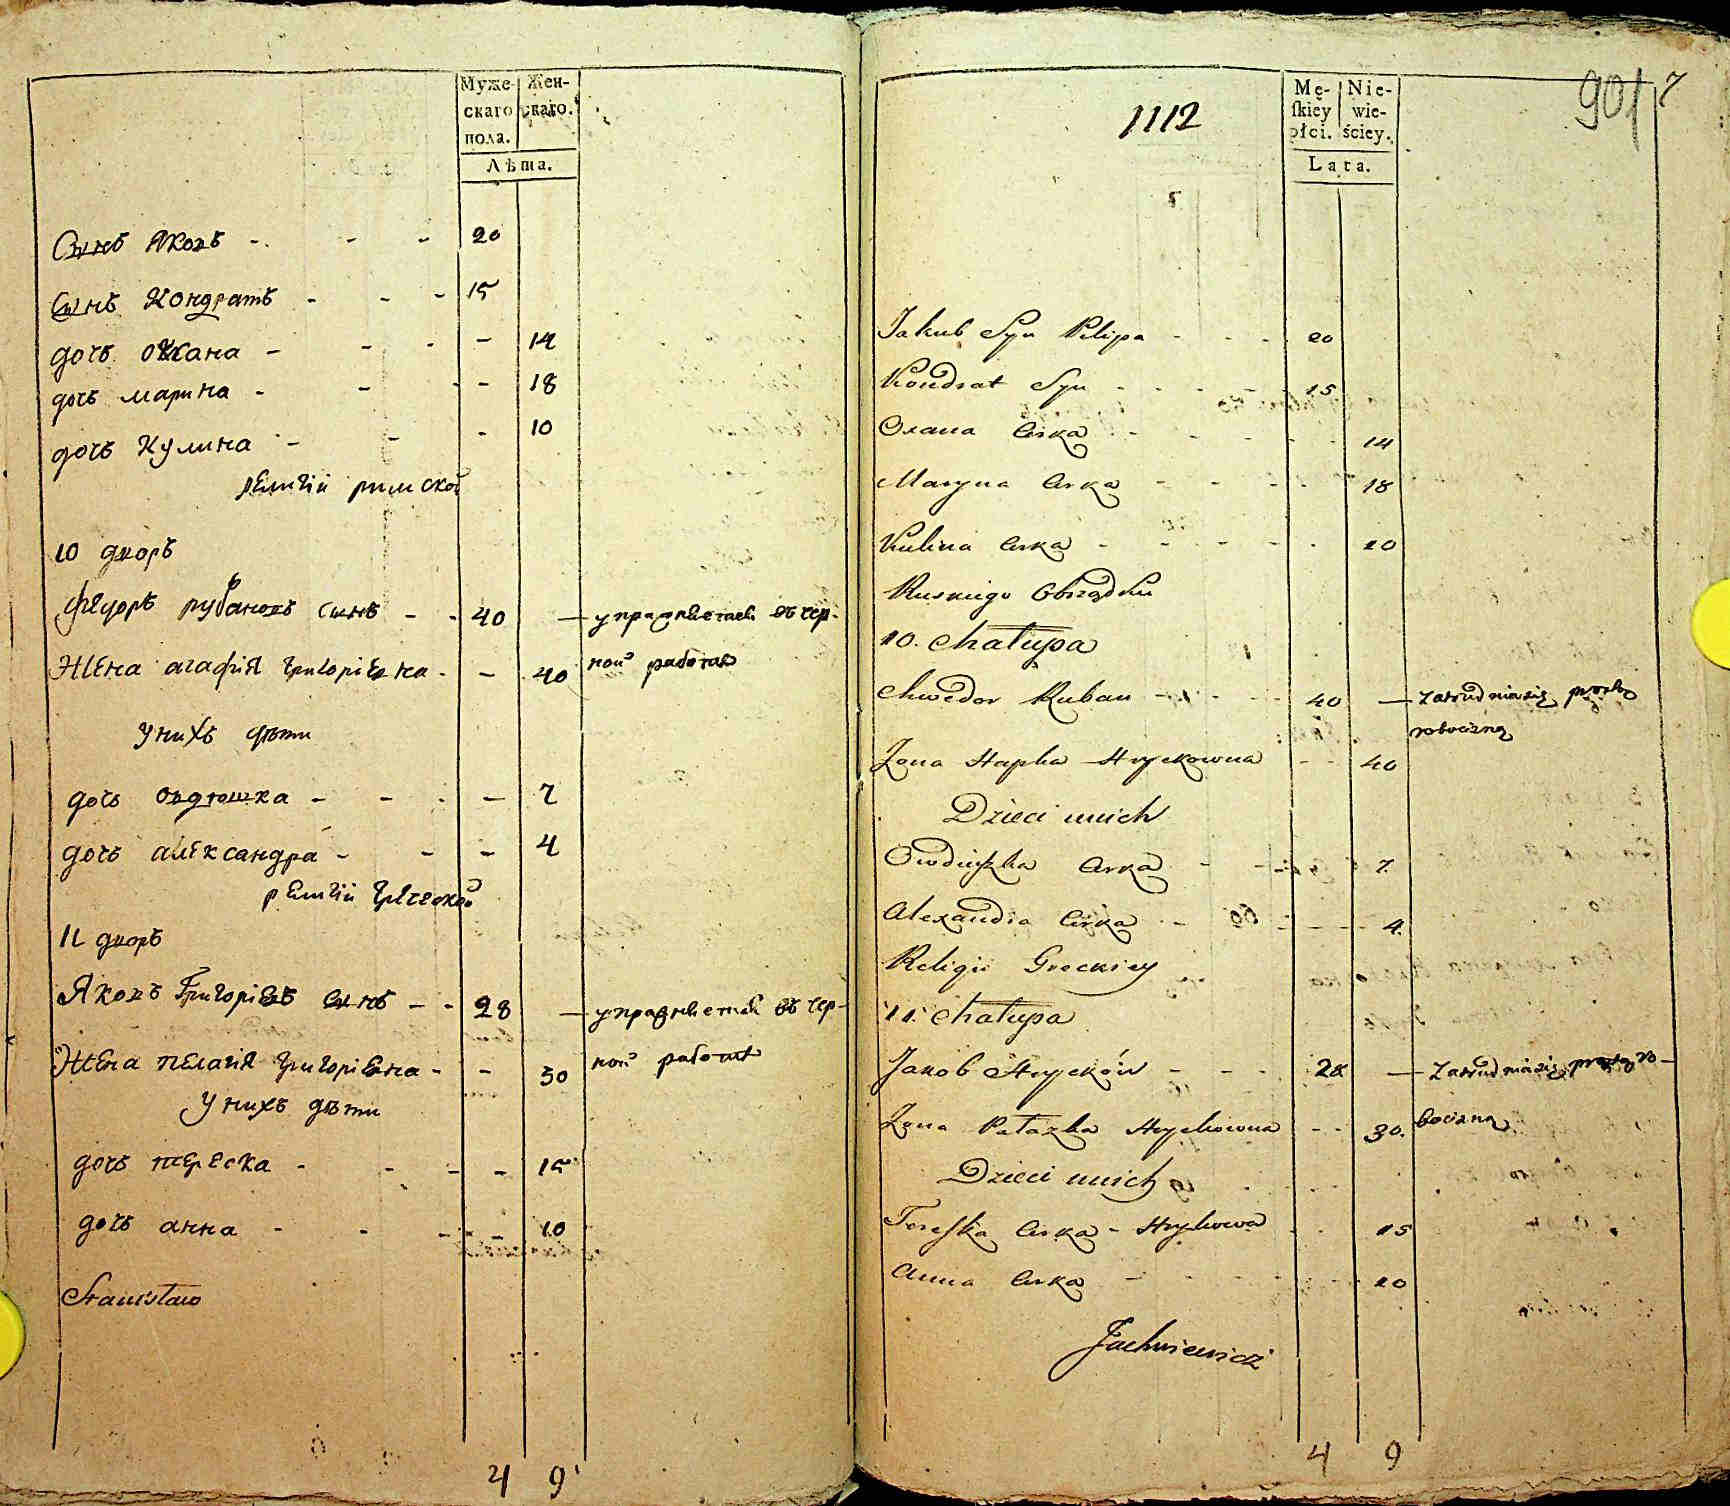 Муже- Жен-
скаго скаго.
пола.
Лѣта.
Сынъ Яковъ - - - 20
Сынъ Кондратъ - - - 15
дочь Оксана - - - - 14
дочь марина - - - - 18
дочь Кулина - - - 10
религіи римской
10 дворъ
Федоръ рубановъ сынъ - - 40 — упражняется въ чер-
ной работе
Жена агафія григоріевна - - 40
У нихъ дѣти
дочь овдюшка - - - - 7
дочь александра - - - 4
религіи греческой
11 дворъ
Яковъ Григоріевъ сынъ - - 28 — упражняется въ чер-
ной работе
Жена пелагія григоріевна - - 30
У нихъ дѣти
дочь тереска - - - - 15
дочь анна - - - - 10
Stanisław
4 9
901 7
1112
Mę- Nie-
skiey wie-
płci. ściey.
Lata.
Jakub Syn Pilipa - - - 20
Kondrat Syn - - - - 15
Oxana Corka - - - - 14
Maryna Corka - - - 18
Kulina Corka - - - - - 10
Ruskiego Obrządku
10. Chałupa
Chwedor Ruban - - - - 40 — Zatrudnia się prostą
robocizną
Zona Hapka Hryckowna - - 40
Dzieci unich
Owdiuszka Corka - - - 7.
Alexandra Corka - - - - 4.
Religii Greckiey
11. Chałupa
Jakob Hrycków - - - 28 — Zatrudnia się prostą ro-
bocizną
Zona Pałazka Hryckowna - - 30.
Dzieci unich
Tereska Corka - Hrykowa - - 15
Anna Corka - - - - 10
Jachniewicz
4 9